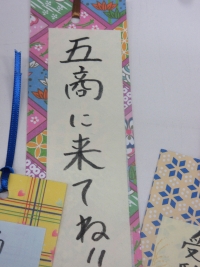 五商に来てね!!
受